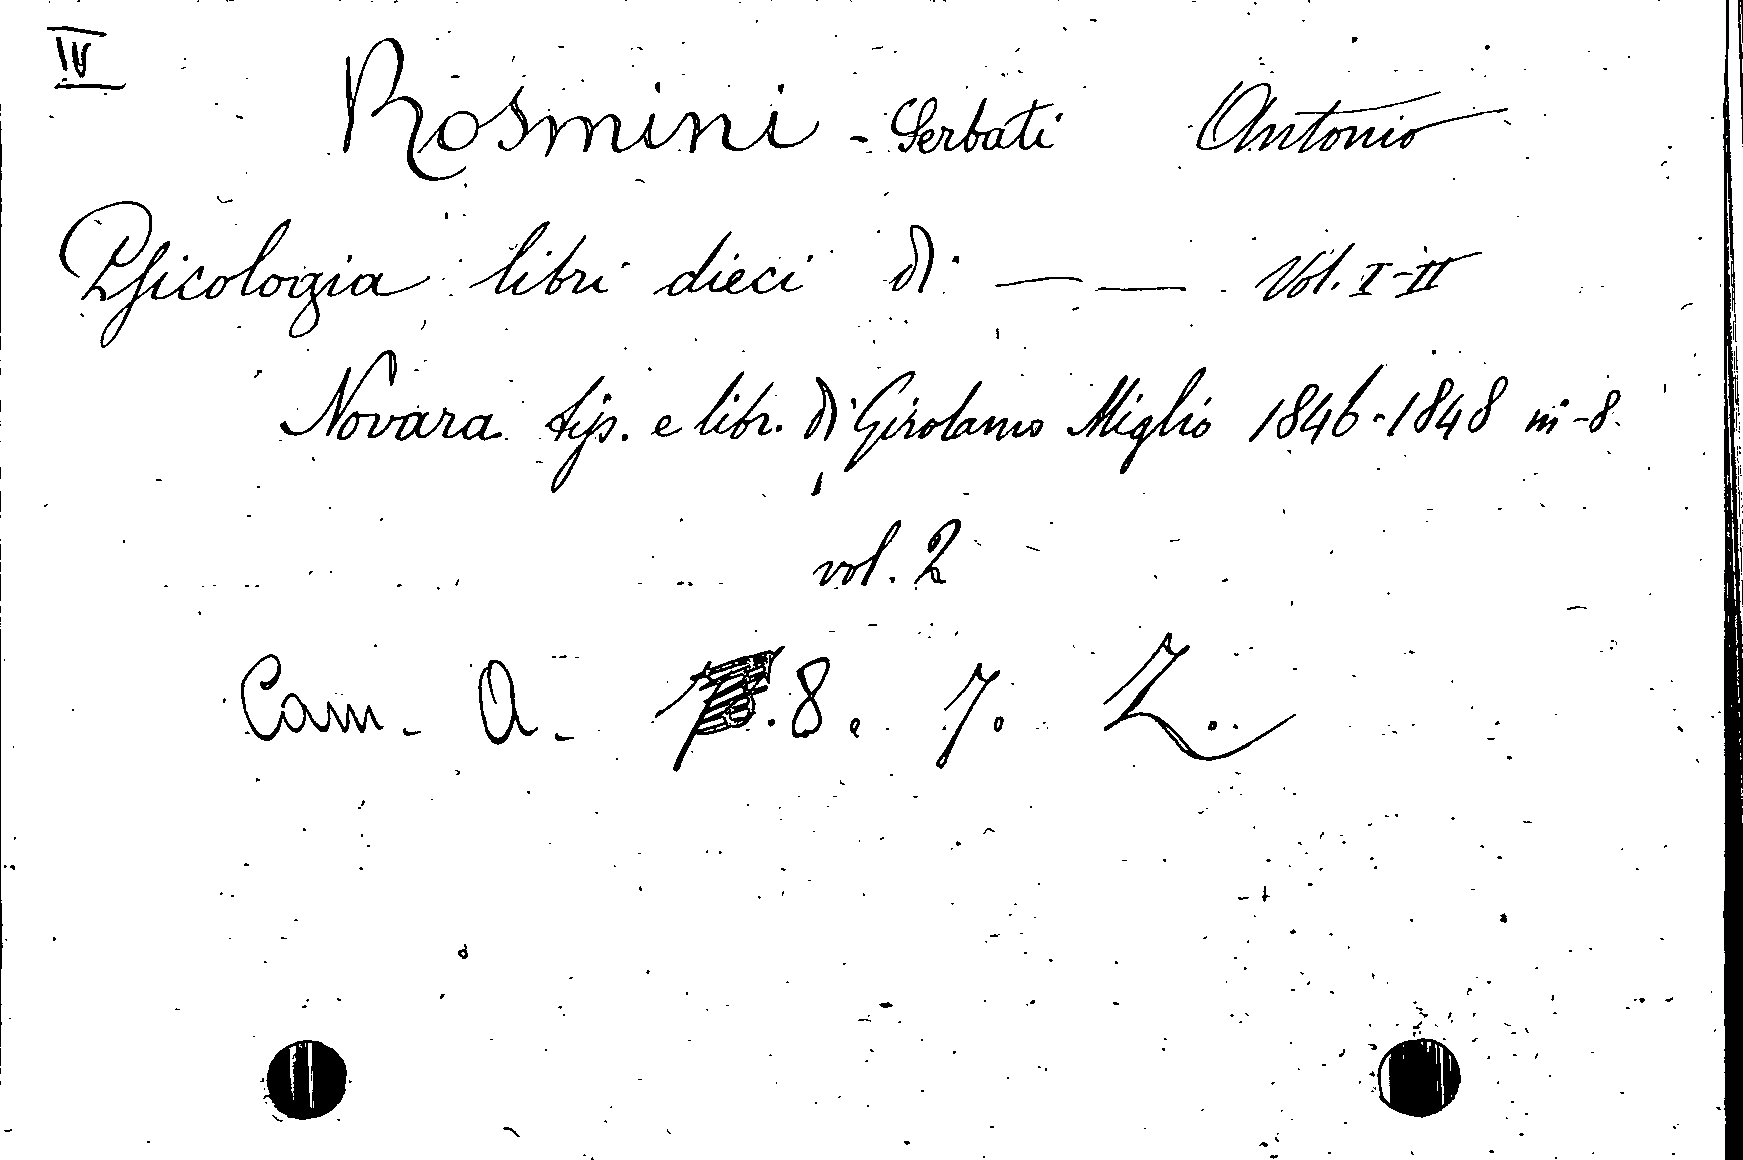 IV
Rosmini - Serbati Antonio
Psicologia libri dieci di — — Vol. I-II
Novara tip. e libr. di Girolamo Miglio 1846-1848 in-8.
vol. 2
Cam. A. .8. 7. Z.